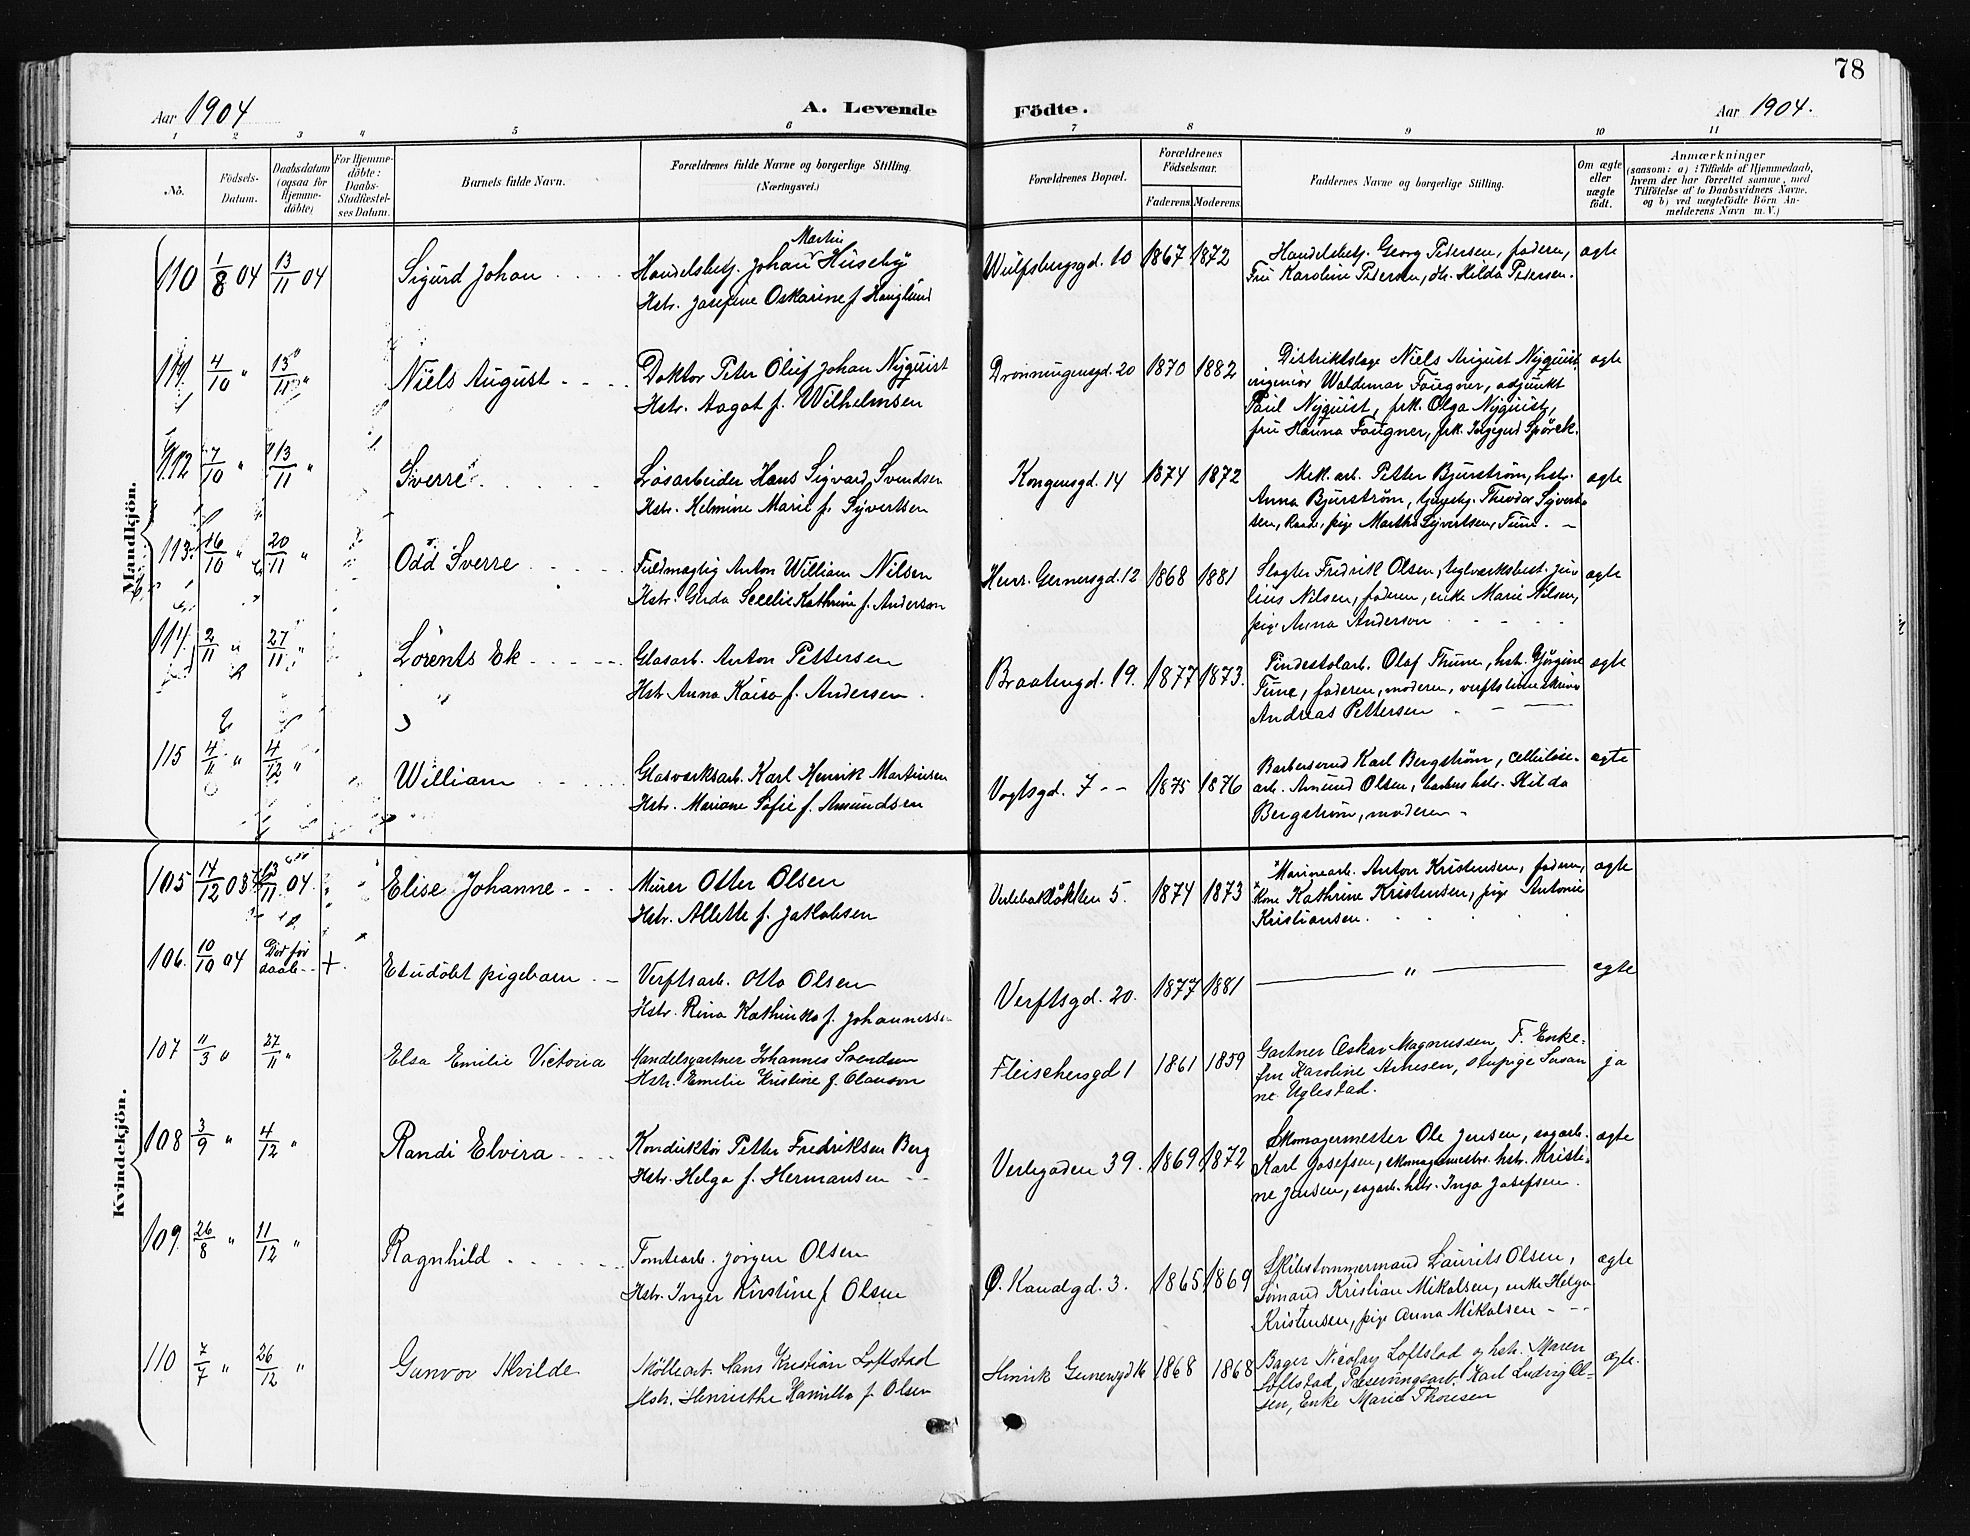 78
Aar 1904
A. Levende
Födte.
Aar 1904.
1 2 3 4 5 6 7 8 9 10 11
No.
Födsels-
Datum.
Daabsdatum
(ogsaa for
Hjemme-
döbte)
For Hjemme-
döbte:
Daabs-
Stadfæstel-
ses Datum.
Barnets fulde Navn.
Forældrenes fulde Navne og borgerlige Stilling.
(Næringsvei.)
Forældrenes Bopæl.
Forældrenes
Födselsaar.
Faderens
Moderens
Faddernes Navne og borgerlige Stilling.
Om ægte
eller
uægte
födt.
Anmærkninger
(saasom: a) i Tilfælde af Hjemmedaab,
hvem der har forrettet samme, med
Tilföielse af to Daabsvidners Navne,
og b) ved uægtefödte Börn An-
melderens Navn m. V.)
Mandkjön.
110 1/8 04 13/11 04 Sigurd Johan
Martin
Handelsbetj. Johan Huseby
Hstr. Josefine Oskarine f. Hauglund
Wulfsbergsgd. 10 1867 1872
Handelsbetj. Georg Pedersen, faderen,
Fru Karoline Pedersen, Hilda Pedersen.
ægte
111 4/10 " 13/11 " Niels August
Doktor Peter Oluf Johan Nyquist
Hstr. Aagot f. Wilhelmsen
Dronningensgd. 20 1870 1882
Distriktslæge Niels August Nyquist,
ingeniör Waldemar Fougner, adjunkt
Paul Nyquist, frk. Olga Nyquist,
fru Hanna Fougner, frk. Ingegerd Spörck.
ægte
112 7/10 " 13/11 " Sverre
Lösarbeider Hans Sigvard Svendsen
Hstr. Helmine Marie f. Syvertsen
Kongensgd. 14 1874 1872
Mek. arb. Petter Bjurström, hstr.
Anna Bjurström, Theodor Syvert-
sen, Raade, pige Martha Syvertsen, Tune.
ægte
113 16/10 " 20/11 " Odd Sverre
Fuldmægtig Anton William Nilsen
Hstr. Gerda Secelie Kathrine f. Anderson
Henr. Gernersgd. 12 1868 1881
Slagter Fredrik Olsen, teglværksbest. Ju-
lius Nilsen, faderen, enke Marie Nilsen,
pige Anna Anderson
ægte
114. 2/11 " 27/11 " Lorents Ek
Glasarb. Anton Pettersen
Hstr. Anna Kaisa f. Andersen.
Braatengd. 19. 1877 1873.
Pindestolarb. Olaf Thune, hstr. Gjörgine
Tune, faderen, moderen,
Andreas Pettersen
ægte
115 4/11 " 4/12 " William
Glasværksarb. Karl Henrik Martinsen
Hstr. Mariane Sofie f. Amundsen
Vogtsgd. 7 1875 1876
Barbersvend Karl Bergström, cellulose-
arb. Amund Olsen, barber hstr. Hilda
Bergström, moderen.
ægte
Kvindekjön.
105 14/12 03 13/11 04. Elise Johanne
Murer Otter Olsen
Hstr. Allette f. Jakobsen
Verlebaklökken 5. 1874 1873
Marinearb. Anton Kristensen, faderen,
Kone Kathrine Kristensen, pige Antonie
Kristiansen.
ægte
106. 10/10 04 Död för
daab + Et udöbt pigebarn
Verftsarb. Otto Olsen
Hstr. Rina Kathinka f. Johannesse-
Verftsgd. 20. 1877 1881
"
ægte
107 11/3 " 27/11 " Elsa Emilie Victoria
Handelsgartner Johannes Svendsen
Hstr. Emilie Kristine f. Olausson
Fleischersgd 1 1861 1859
Gartner Oskar Magnussen, F. Enke-
fru Karoline Arnesen, stupige Susan
ne Uglestad.
ja
108 3/9 " 4/12 " Randi Elvira
Konduktör Petter Fredriksen Berg
Hstr. Helga f. Hermansen
Verlegaden 39. 1869 1872
Skomagermester Ole Jensen, sagarb.
Karl Josefsen, skomagermestrs. hstr. Kristi-
ne Jensen, sagarb. hstr. Inga Josefsen.
ægte
109. 26/8 " 11/12 " Ragnhild
Tomtearb. Jörgen Olsen
Hstr. Inger Kirstine f. Olsen
Ö. Kanalgd. 3. 1865 1869
Skibstömmermand Laurits Olsen,
Sömand Kristian Mikalsen, enke Helga
Kristensen, pige Anna Mikalsen
ægte
110 7/7 " 26/12 " Gunvor Alvilde
Mölleart. Hans Kristian Loftstad
Hstr. Henriethe Kamilla f. Olsen
Henrik Gernersgd 16 1868 1868
Bager Nicolay Loftstad og hstr. Maren
Loftstad, Karl Ludvig Ol-
sen, Enke Marie Thoresen
ægte.